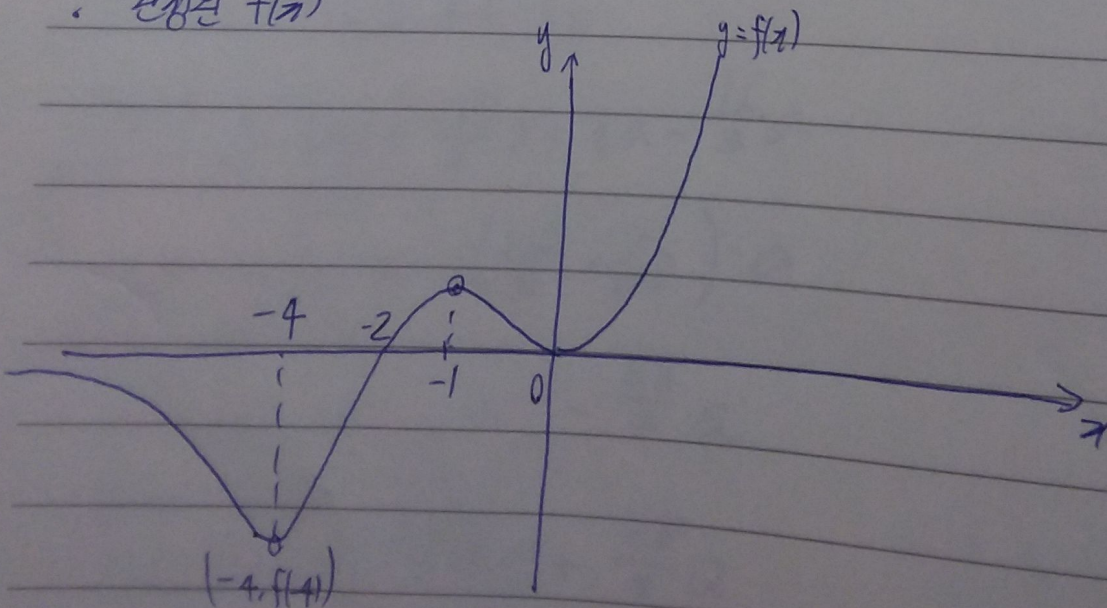 . 완성된 f(x)
y
y=f(x)
-4
-2
-1
0
x
(-4, f(-4))